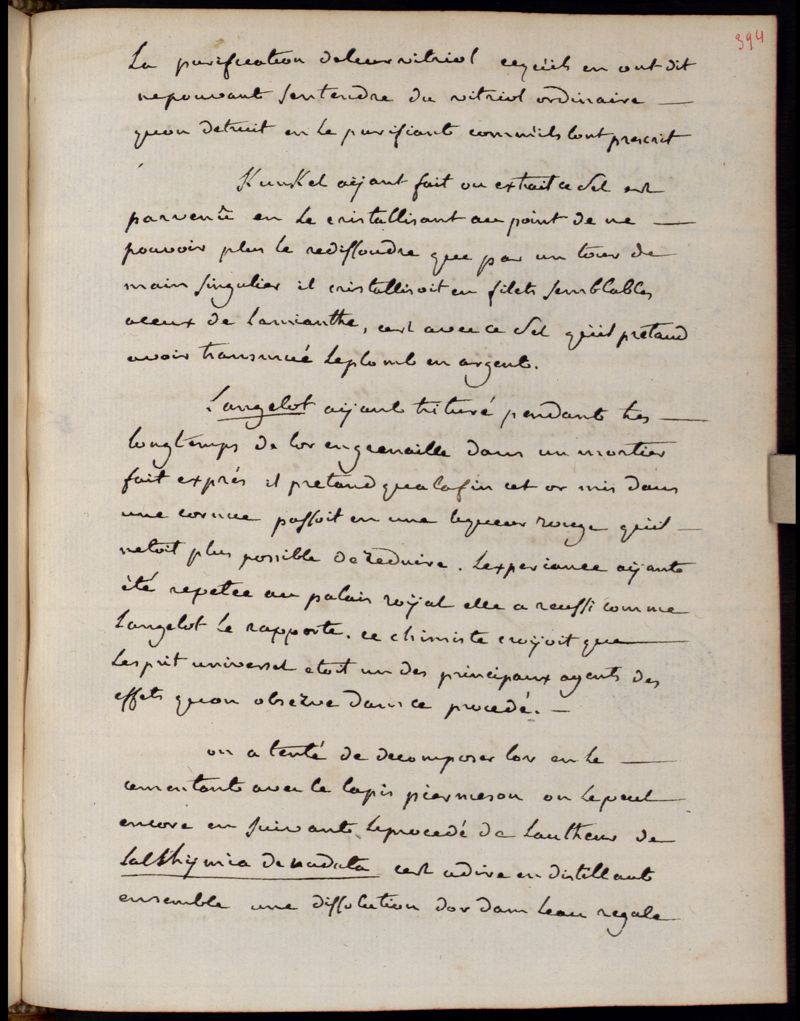 394
La purification deleur vitriol cequils en ont dit
nepouvant sentendre du vitriol ordinaire —
quon detruit en le purifiant comm'ils lont prescrit
Kunkel aÿant fait ou extrait ce sel est
parvenu en le cristallisant au point de ne —
pouvoir plus le redissoudre que par un tour de
main singulier il cristallisoit en filets semblables
aceux de lamianthe, cest avec ce sel qu'il pretend
avoir transmué leplomb en argent.
Langelot aÿant trituré pendant tres —
longtemps de lor engrenaille dans un mortier
fait exprés il pretend qualafin cet or mis dans
une cornue passoit en une liqueur rouge quil —
netoit plus possible de reduire. Lexperiance aÿant
été repetée au palais roÿal elle a reussi comme
Langelot le rapporte. ce chimiste croÿoit que —
Lesprit universel etoit un des principaux agents des
effets quon observe dans ce procedé. —
on a tenté de decomposer lor en le —
cementant avec le lapis piermeson on lepeut
encore en suivant leprocedé de Lautheur de
Lalkhÿmia denudata cest adire en distillant
ensemble une dissolution dor dans leau regale